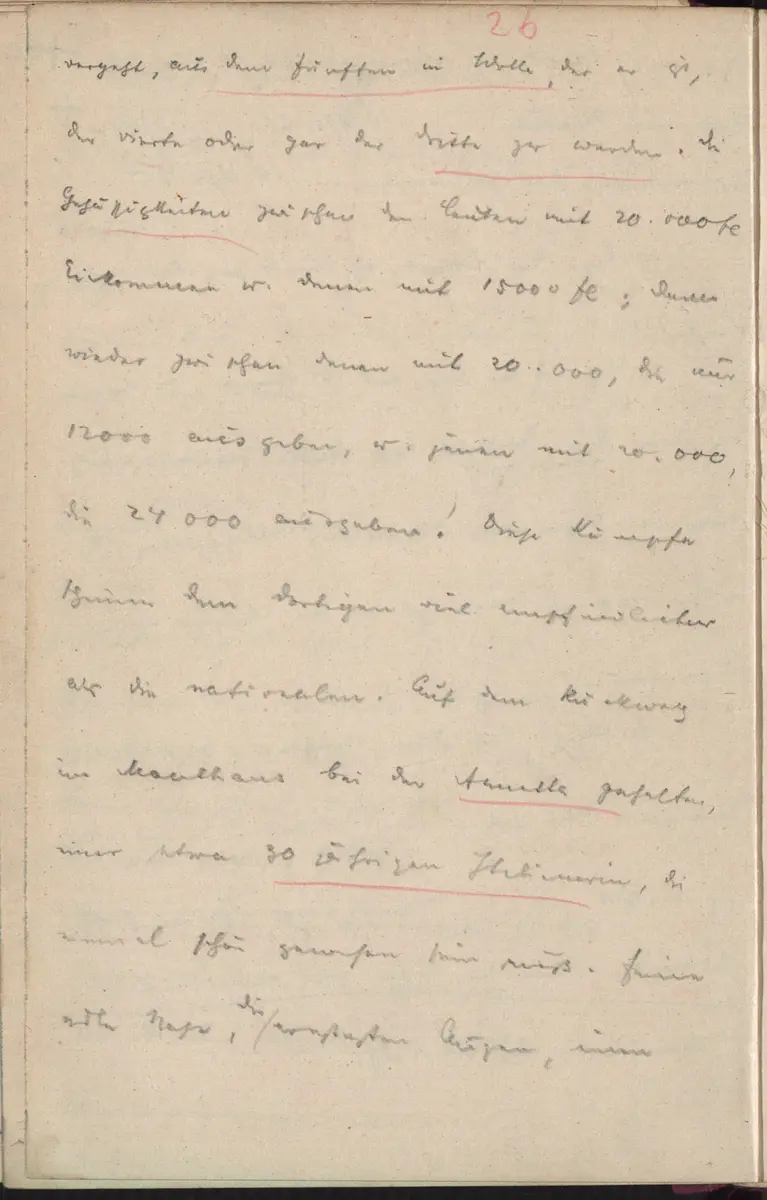 26
vergeht, aus dem fünften in Wolle, der er ist,
der vierte oder gar der dritte zu werden. Die
Gehässigkeiten zwischen den Leuten mit 20.000 fl
Einkommen u. denen mit 15000 fl; dann
wieder zwischen denen mit 20..000, die nur
12000 ausgeben, u. jenen mit 20.000,
die 24 000 ausgeben! Diese Kämpfe
seien dem dortigen viel empfindlicher
als die nationalen. Auf dem Rückweg
im Mauthaus bei der gehalten,
einer etwa 30 jährigen Italienerin, die
einmal schön gewesen sein muß. Feine
edle Nase, die Augen, einen